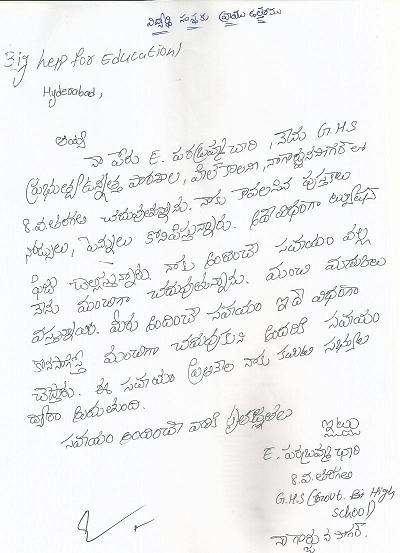 విద్యార్థి సంస్థకు వ్రాయు ఉత్తరము
Big help for Education)
Hyderabad,
అయ్యా
నా పేరు E. పరబ్రహ్మ చారి, నేను G.H.S
ప్రభుత్వ ఉన్నత పాఠశాల, హిల్ కాలని, నాగార్జున సాగర్ లో
8. వ తరగతి చదువుతున్నాను. నాకు కావలసిన పుస్తకాలు
నోట్సులు, పెన్నులు కొనిపిస్తున్నారు. అదే విధంగా ట్యూషన్
ఫీజు చెల్లిస్తున్నారు. నాకు అందించే సహాయం వల్ల
నేను మంచిగా చదువుతున్నాను. మంచి మార్కులు
వస్తున్నాయి. మీరు అందించే సహాయం ఇదే విధంగా
కొనసాగిస్తే మంచిగా చదువుకుని ఇతరులకి సహాయం
చేస్తాను. ఈ సహాయం ప్రతినెల నాకు కమిటి సభ్యుల
ద్వారా అందుతుంది.
సహాయం అందించే వారికి కృతజ్ఞతలు
ఇట్లు
E. పరబ్రహ్మ చారి
8. వ తరగతి
G.H.S (Govt. High
school)
నాగార్జున సాగర్.